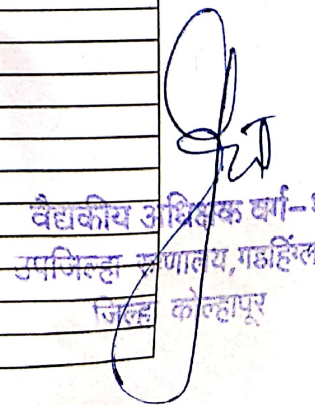 वैद्यकीय अधिक्षक वर्ग-१
उपजिल्हा रुग्णालय, गडहिंग्ल
जिल्हा कोल्हापूर